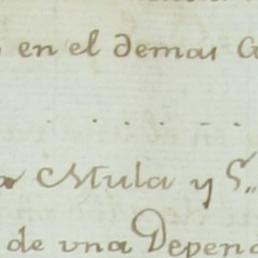 en el demas
Mula y S.,,
de vna Depend